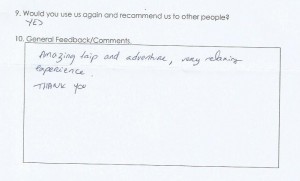 9. Would you use us again and recommend us to other people?
YES
10. General Feedback/Comments.
Amazing trip and adventure, very relaxing
experience.
THANK YOU